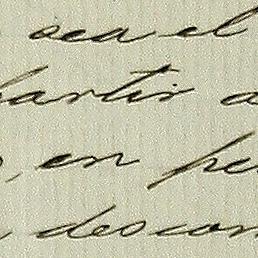 sea el
partir a
, en pe
descon